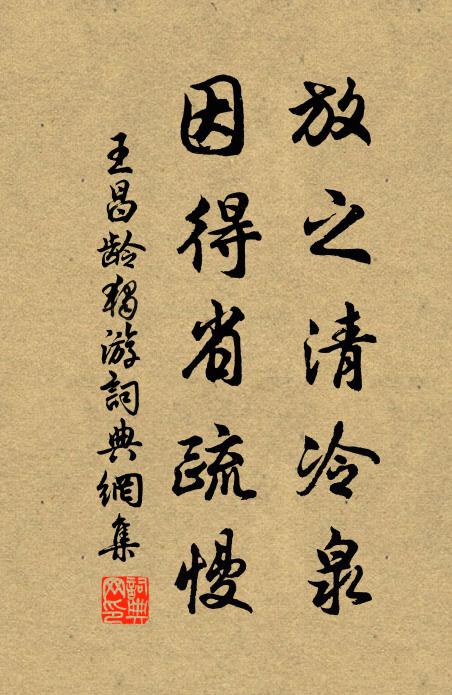 放之清冷泉
因得省疏慢
王昌龄独游詞典網集
詞典
网印